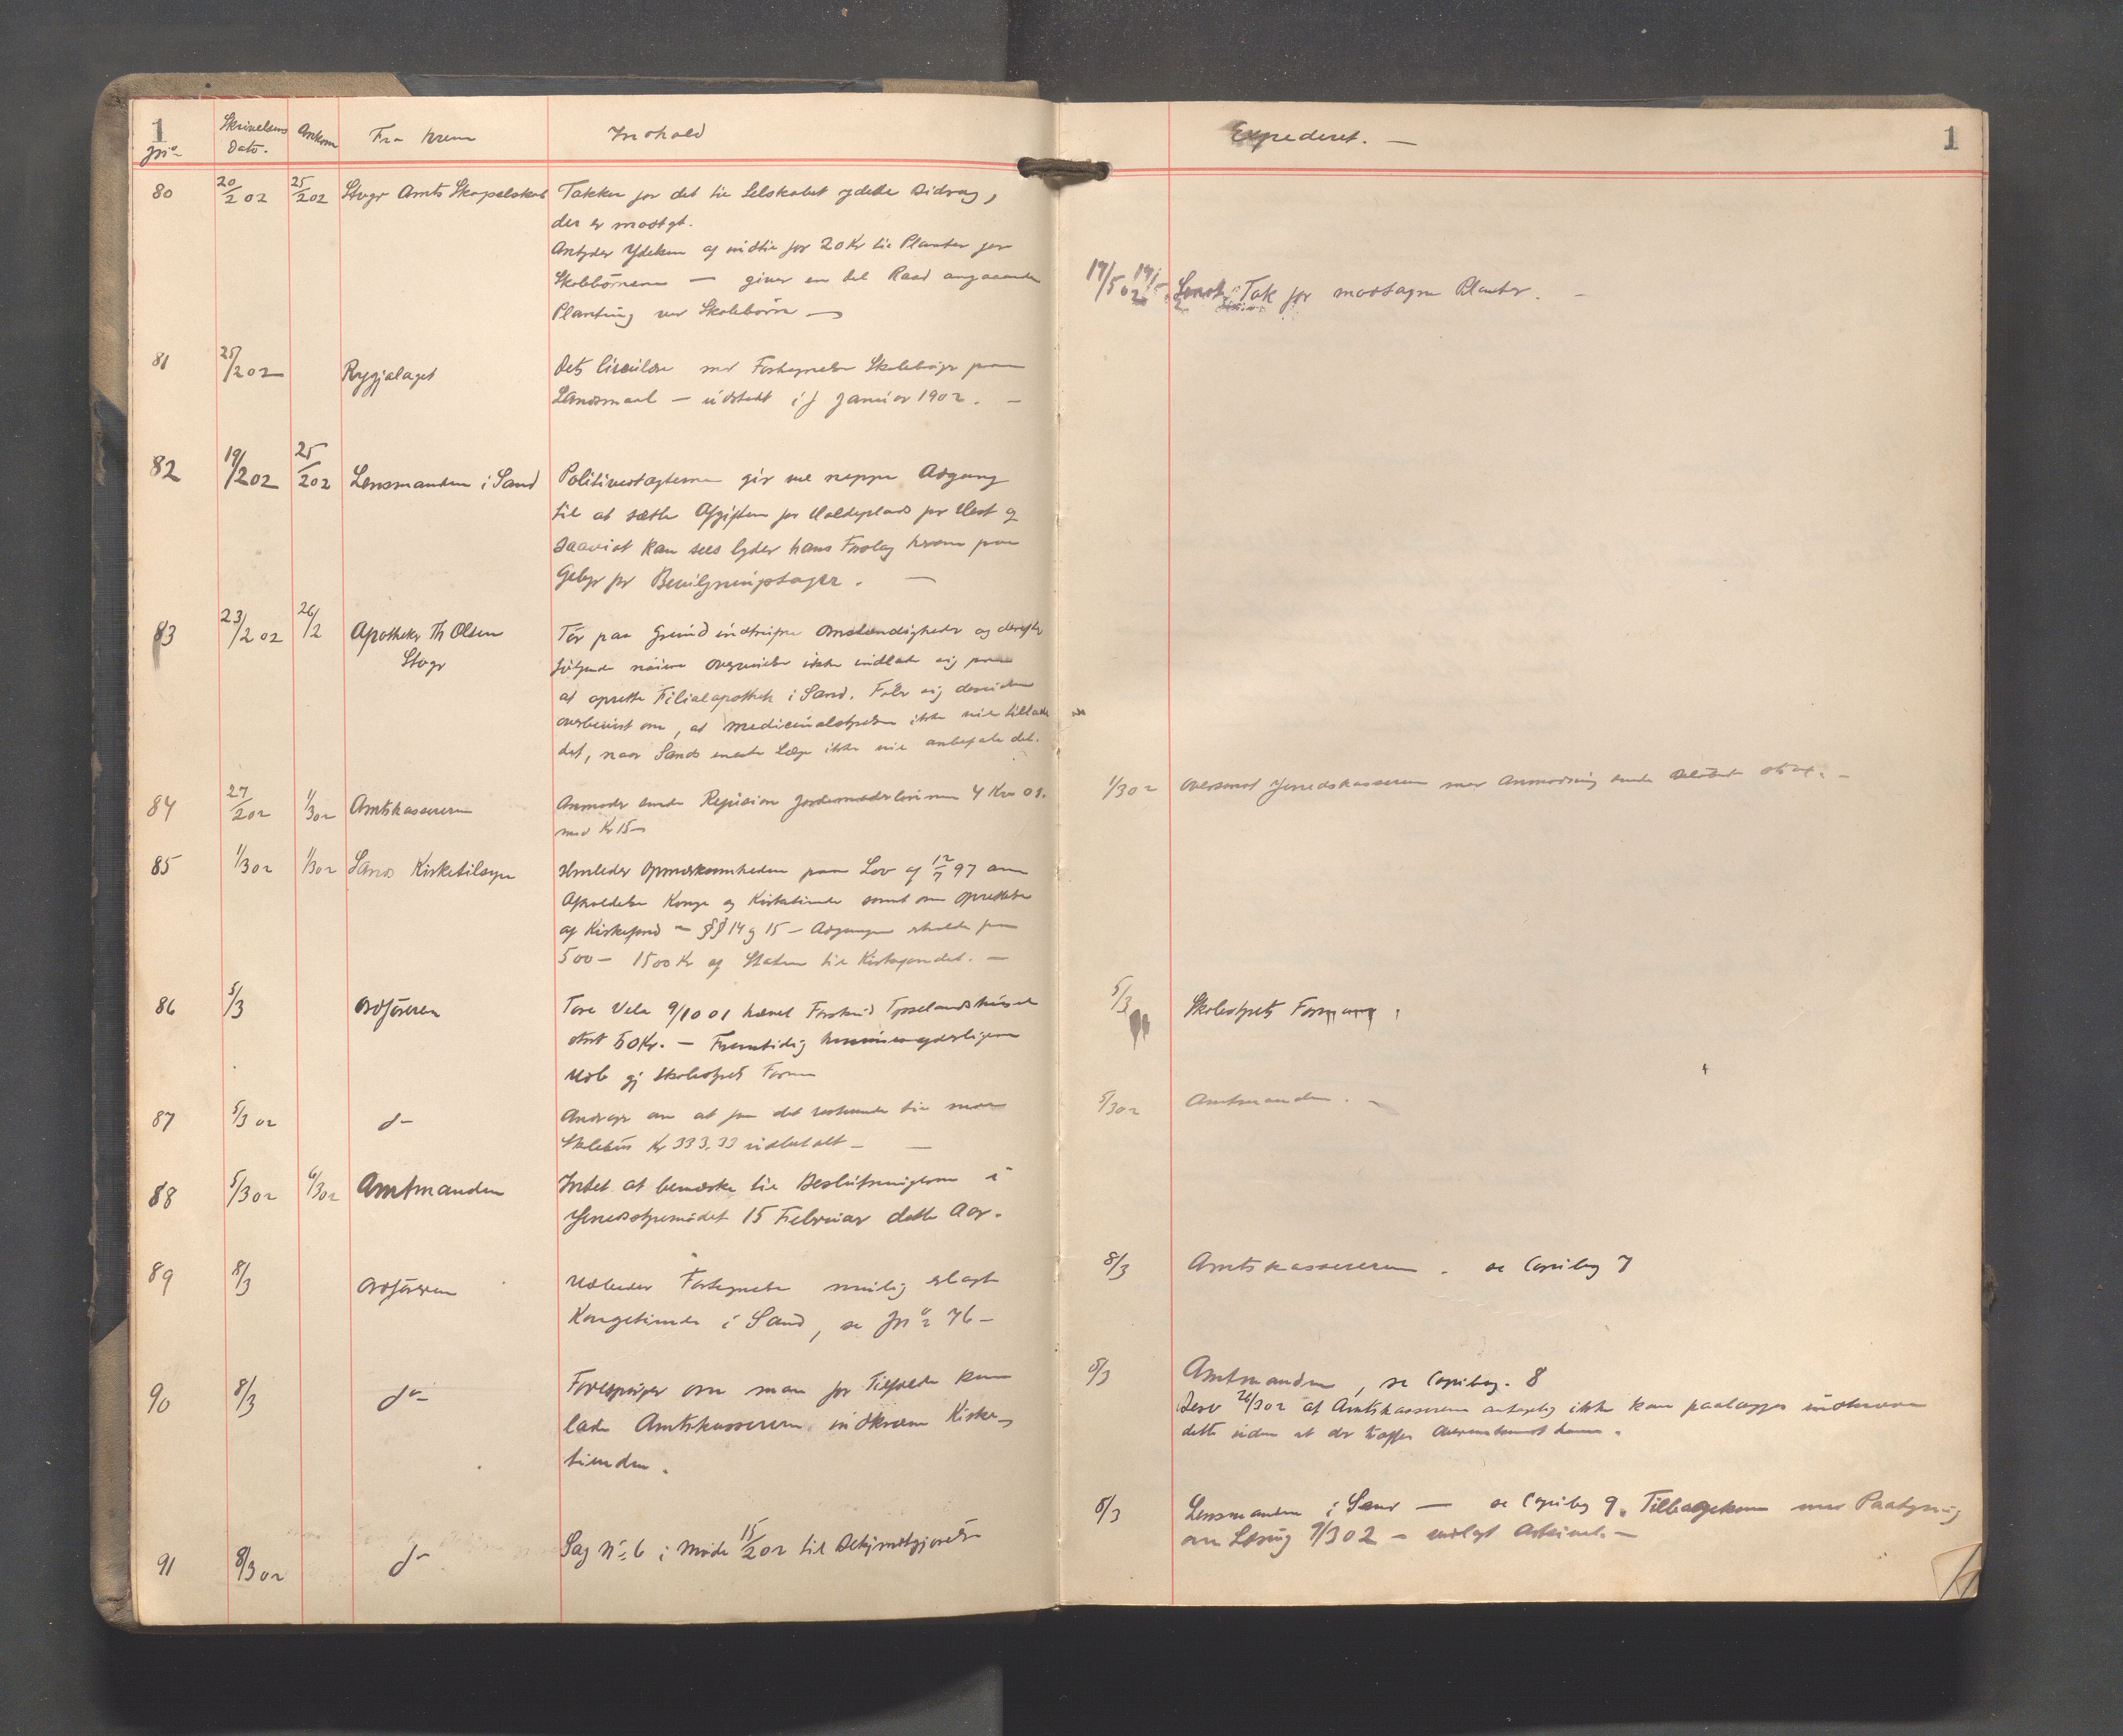 1
Jnr
Skrivelsens Dato.
Ankom
Fra hvem
Indhold
Expederet. —
1
80 20/2 02 25/2 02 Stvgr Amts Skogselskab Takker for det til Selskabet ydede Bidrag,
der er modtgt.
Antyder Ydelsen af indtil for 20 Kr til Planter for
Skolebørnene — giver en del Raad angaaende
Planting ved Skolebørn —
17/5 02 Tak for modtagne Planter. —
81 25/2 02 Rygjalaget Dets Circulære med Fortegnelse Skolebøger paa
Landsmaal — udstedt i Januar 1902. —
82 19/2 02 25/2 02 Lensmanden i Sand Politivedtægterne gir vel neppe Adgang
til at sætte Afgiften for Holdeplads for Hest og
saavidt kan sees lyder hans Forslag kun paa
Gebyr for Bevilgningstager. —
83 23/2 02 26/2 Apotheker Th Olsen
Stvgr
Tør paa Grund indtrufne Omstændigheder og derefter
følgende nøiere Overveielse ikke indlade sig paa
at oprette Filialapothek i Sand. Føler sig desuden
overbevist om, at Medicinalstyrelsen ikke vil tillade
det, naar Sands eneste Læge ikke vil anbefale det.
84 27/2 02 1/3 02 Amtskassereren Anmoder sende Refusion Jordemoderlønnen 4 Kv 01.
med Kr 15—
1/3 02 Oversendt Herredskassereren med Anmodning sende Beløbet —
85 1/3 02 1/3 02 Sands Kirketilsyn Henleder Opmærksomheden paa Lov af 12/7 97 om
Afholdelse Konge og Kirketiende samt om Oprettelse
af Kirkefond — §§ 14 og 15 — Adgangen erholde fra
500— 1500 Kr af Staten til Kirkefondet. —
86 5/3 Ordføreren Tore Vela 9/10 01 hævet Forskud Tysselandshuset
stort 50 Kr. — Fremtidig
Udb gj Skolestyrets Form
5/3 Skolestyrets Formand
87 5/3 02 do Andrager om at faa det resterende til
Skolehus Kr 333.33 udbetalt —
5/3 02 Amtmanden. —
88 5/3 02 6/3 02 Amtmanden Intet at bemærke til Beslutningerne i
Herredsstyremødet 15 Februar dette Aar.
89 8/3 Ordføreren Udbeder Fortegnelse mulig erlagt
Kongetiende i Sand, se Jnr 76 —
8/3 Amtskassereren. se Copibog 7
90 8/3 do Forespørger om man for Tilfælde kan
lade Amtskassereren indkræve Kirke-
tienden.
8/3 Amtmanden, se Copibog. 8
Besv 26/3 02 at Amtskassereren antagelig ikke kan paalægges indkræve
dette uden at der træffes Overenskomst
91 8/3 02 do Sag No 6 i Møde 15/2 02 til Bekjendtgjørelse
8/3 Lensmanden i Sand — se Copibog 9. Tilbagekom med Paategning
om Læsning 9/3 02 — vedlagt Arkivet. —